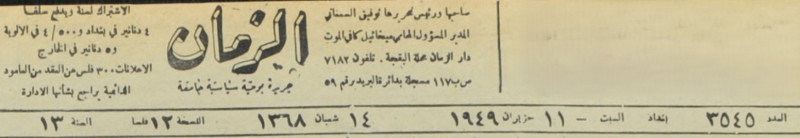 صاحبها ورئيس تحريرها توفيق السمعاني
المدير المسؤول المحامي ميخائيل كافي الموت
دار الزمان محلة البقجة . تلفون ٧١٨٢
ص ب ١١٧ مسجلة بدائرة البريد رقم ٥٩
الزمان
جريدة يومية سياسية جامعة
الاشتراك لسنة ويدفع سلفاً
٤ دنانير في بغداد و ٥٠٠ / ٤ في الالوية
و ٥ دنانير في الخارج
الاعلانات ٣٠٠ فلس عن العقد من العامود
الدائمية يراجع بشأنها الادارة
العدد ٣٥٤٥ بغداد السبت – ١١ حزيران ١٩٤٩ ١٤ شعبان ١٣٦٨ النسخة ١٢ فلسا السنة ١٣